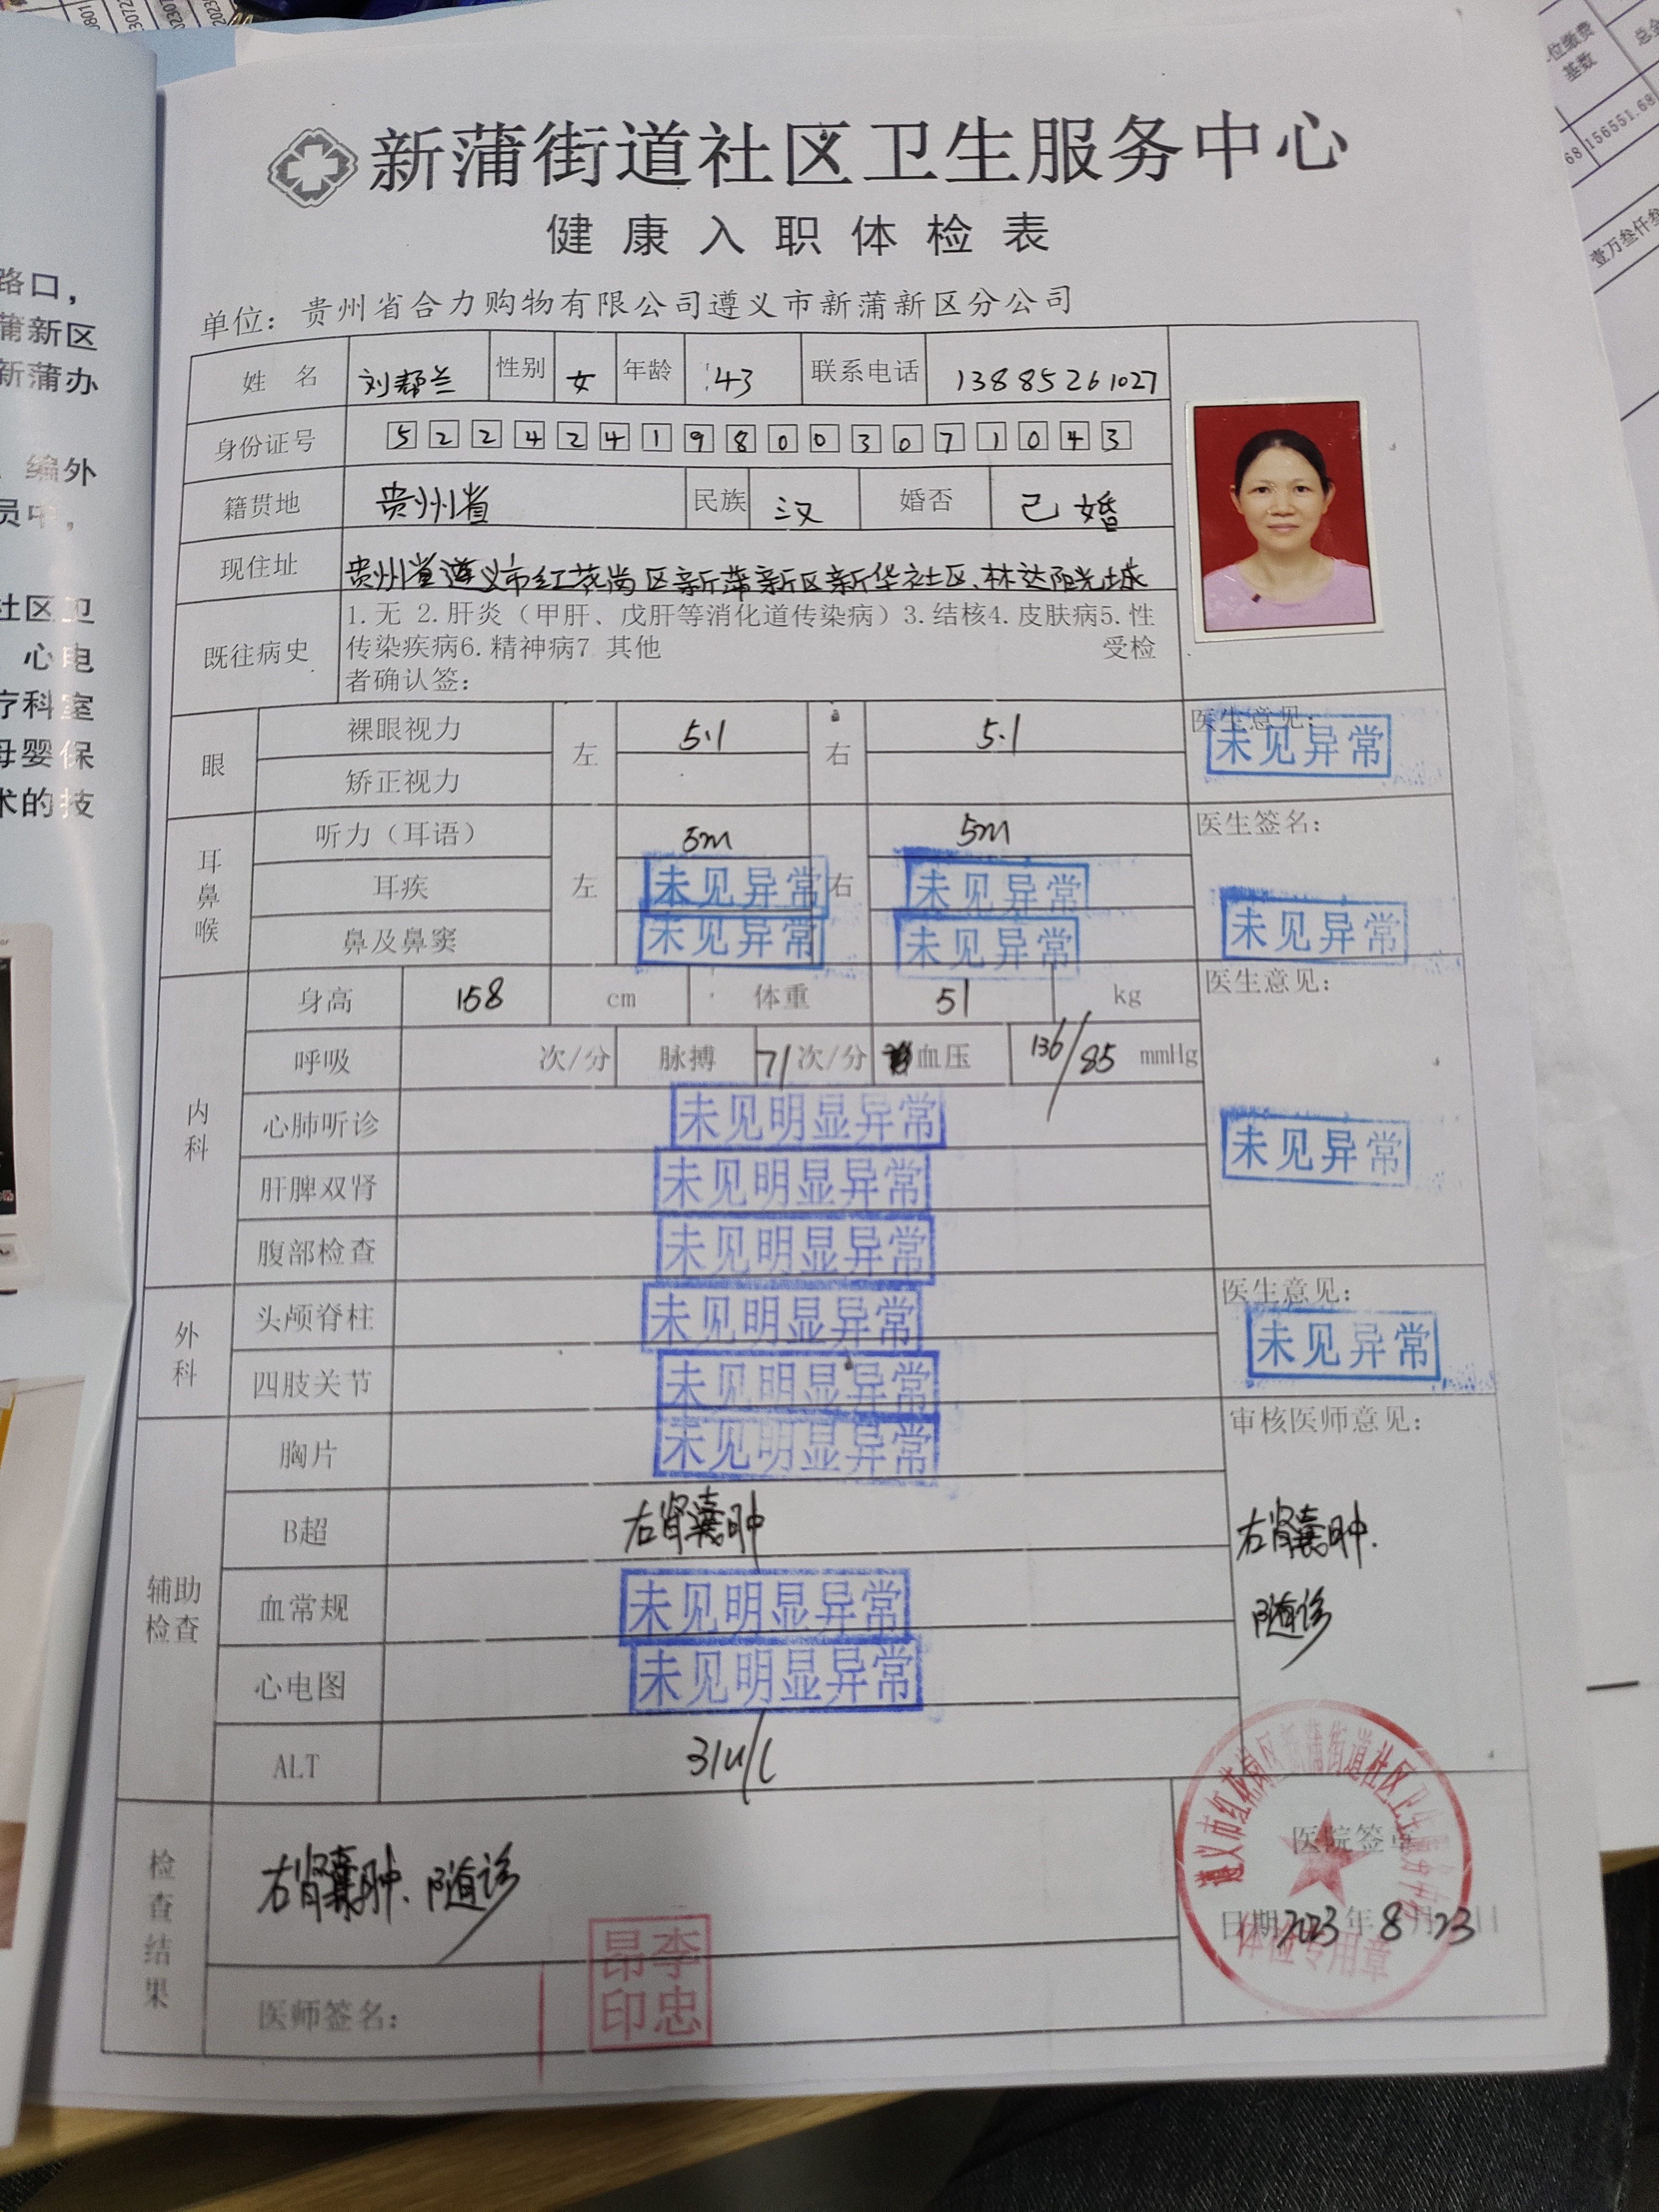 新蒲街道社区卫生服务中心
健康入职体检表
单位：贵州省合力购物有限公司遵义市新蒲新区分公司
姓 名 刘帮兰 性别 女 年龄 43 联系电话 13885261027
身份证号 522424198003071043
籍贯地 贵州省 民族 汉 婚否 已婚
现住址 贵州省遵义市红花岗区新蒲新区新华社区、林达阳光城
既往病史 1.无 2.肝炎（甲肝、戊肝等消化道传染病）3.结核4.皮肤病5.性
传染疾病6.精神病7 其他 受检
者确认签：
眼 裸眼视力 左 5.1 右 5.1 医生意见：
未见异常
矫正视力
耳鼻喉 听力（耳语） 5m 5m 医生签名：
耳疾 左 未见异常 右 未见异常
鼻及鼻窦 未见异常 未见异常 未见异常
内科 身高 158 cm 体重 51 kg 医生意见：
呼吸 次/分 脉搏 71 次/分 血压 136/85 mmHg
心肺听诊 未见明显异常 未见异常
肝脾双肾 未见明显异常
腹部检查 未见明显异常
外科 头颅脊柱 未见明显异常 医生意见：
未见异常
四肢关节 未见明显异常
辅助检查 胸片 未见明显异常 审核医师意见：
B超 右肾囊肿 右肾囊肿.
血常规 未见明显异常 随诊
心电图 未见明显异常
ALT 31u/L
检查结果 右肾囊肿. 随诊
医院签章
遵义市红花岗区新蒲街道社区卫生服务中心
体检专用章
日期2023年8月23日
医师签名：
李忠昂印
路口，
蒲新区
新蒲办
编外
员中，
社区卫
心电
疗科室
母婴保
术的技
位缴费
基数
总金
68 156551.68
壹万叁仟叁